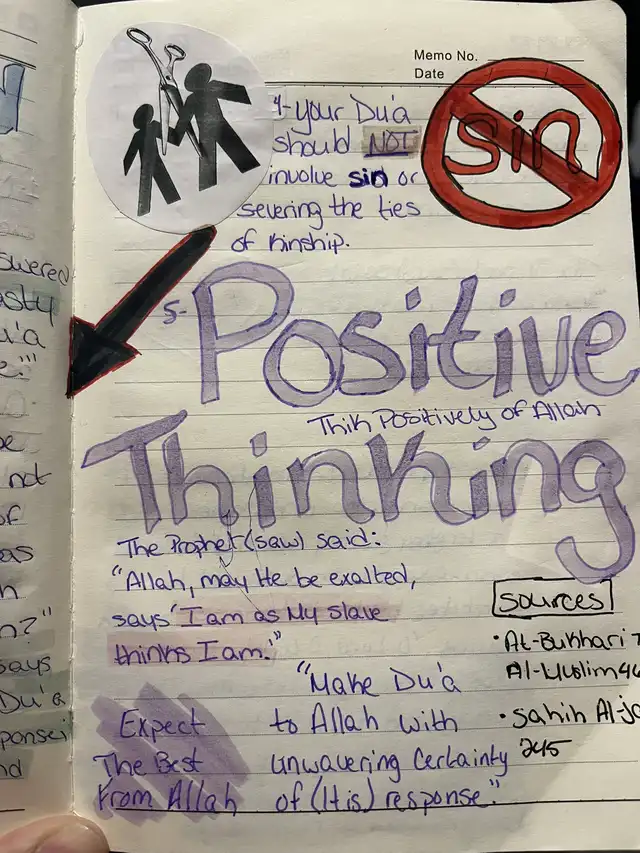 Memo No.
Date
4- your Du'a
should NOT
involve sin or
severing the ties
of Kinship.
sin
5- Positive
Thik Positively of Allah
Thinking
The Prophet (saw) said:
"Allah, may He be exalted,
says 'I am as My slave
thinks I am.'"
Expect
The Best
From Allah
"Make Du'a
to Allah with
unwavering Certainty
of (His) response."
sources
• At-Bukhari
Al-Muslim
• Sahih Al-
245
swered
asty
u'a
e
not
of
as
h
n?"
says
Du'a
ponse
nd